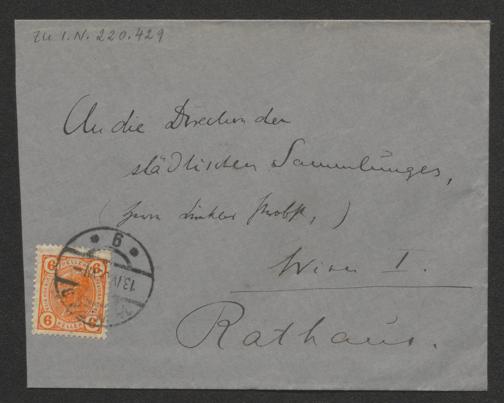 zu I.N. 220.429
An die Direction der
städtischen Sammlungen,
(Herrn Probst,)
Wien I.
Rathaus.
6
13 IV
6 6
6 6
HELLER